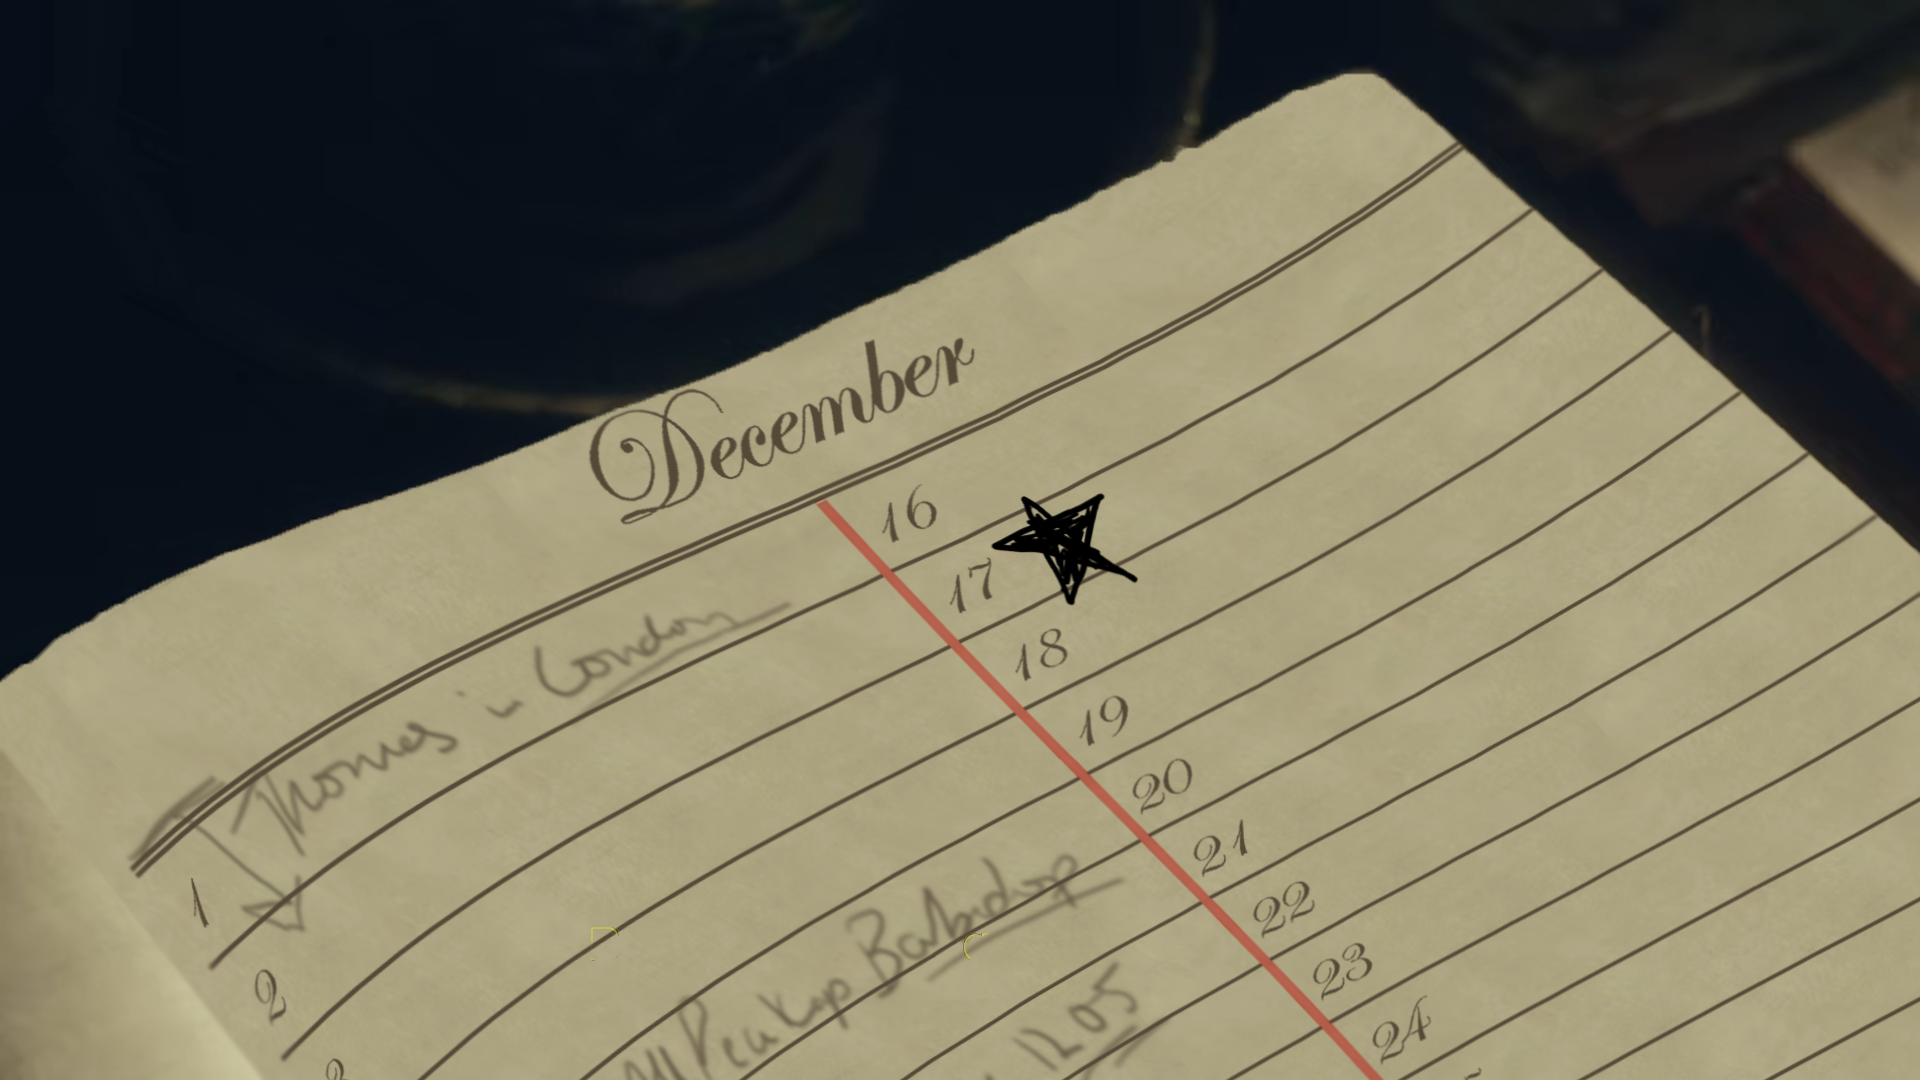 December
Thomas in London
1
2
3
Peakup
1205
16
17
18
19
20
21
22
23
24